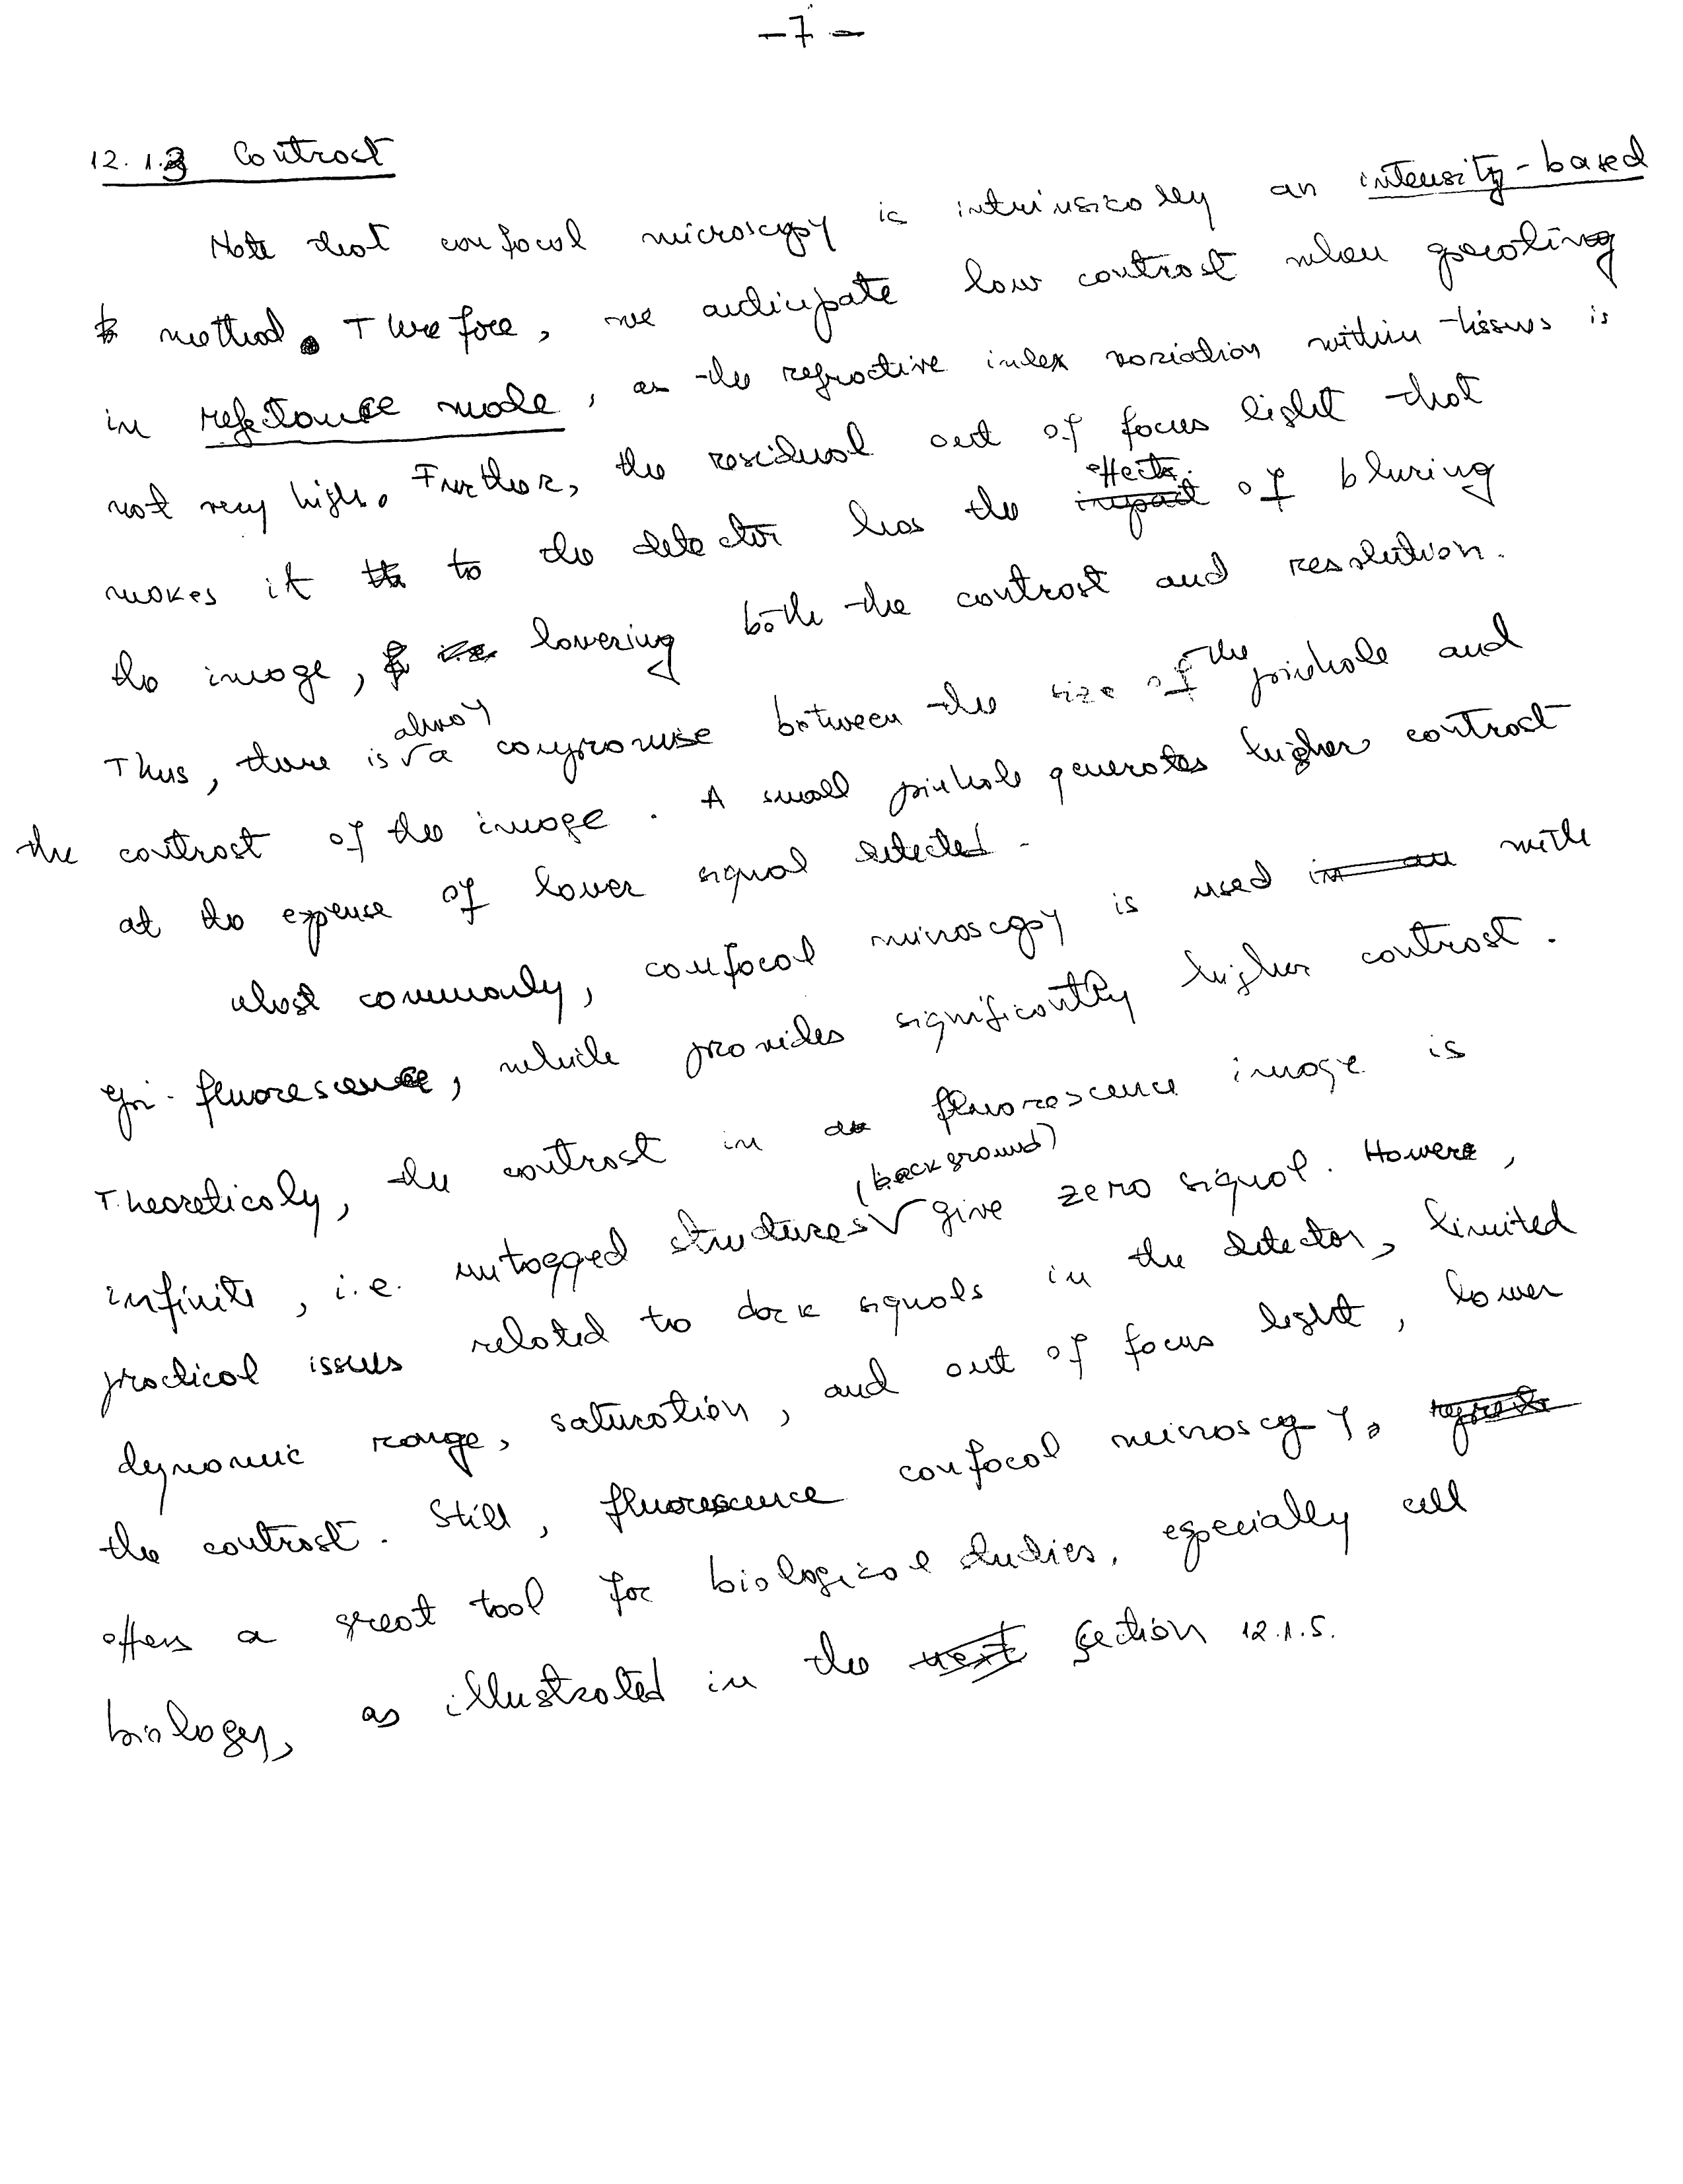 -7-
12.1.3 Contrast
Note that confocal microscopy is intrinsically an intensity-based
method. Therefore, we anticipate low contrast when operating
in reflectance mode, as the refractive index variation within tissues is
not very high. Further, the residual out of focus light that
makes it to the detector has the effects of bluring
the image, lowering both the contrast and resolution.
Thus, there is always a compromise between the size of the pinhole and
the contrast of the image. A small pinhole generates higher contrast
at the expense of lower signal detected.
Most commonly, confocal microscopy is used with
epi-fluorescence, which provides significantly higher contrast.
Theoreticaly, the contrast in fluorescence image is
infinite, i.e. untagged structures (background) give zero signal. However,
practical issues related to dark signals in the detector, limited
dynamic range, saturation, and out of focus light, lower
the contrast. Still, fluorescence confocal microscopy
offers a great tool for biological studies, especially cell
biology, as illustrated in the section 12.1.5.